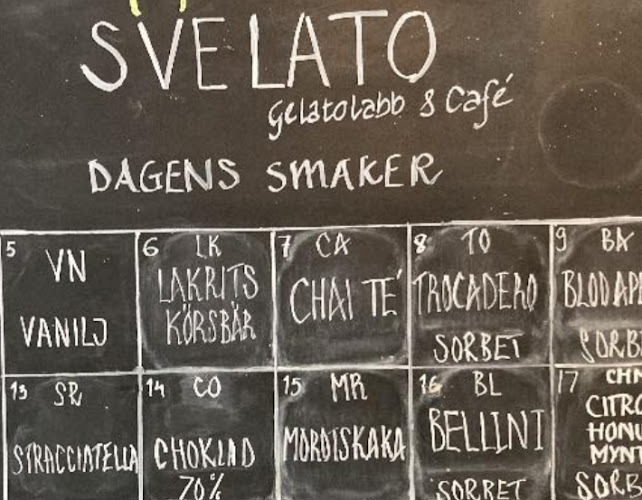 SVELATO
Gelatolabb & Café
DAGENS SMAKER
5 VN
VANILJ
6 LK
LAKRITS
KÖRSBÄR
7 CA
CHAI TÉ
8 TO
TROCADERO
SORBET
9 BA
BLODAP
SORB
13 SR
STRACCIATELLA
14 CO
CHOKLAD
70%
15 MR
MOROTSKAKA
16 BL
BELLINI
SORBET
17 CHM
CITRO
HONU
MYNT
SORB